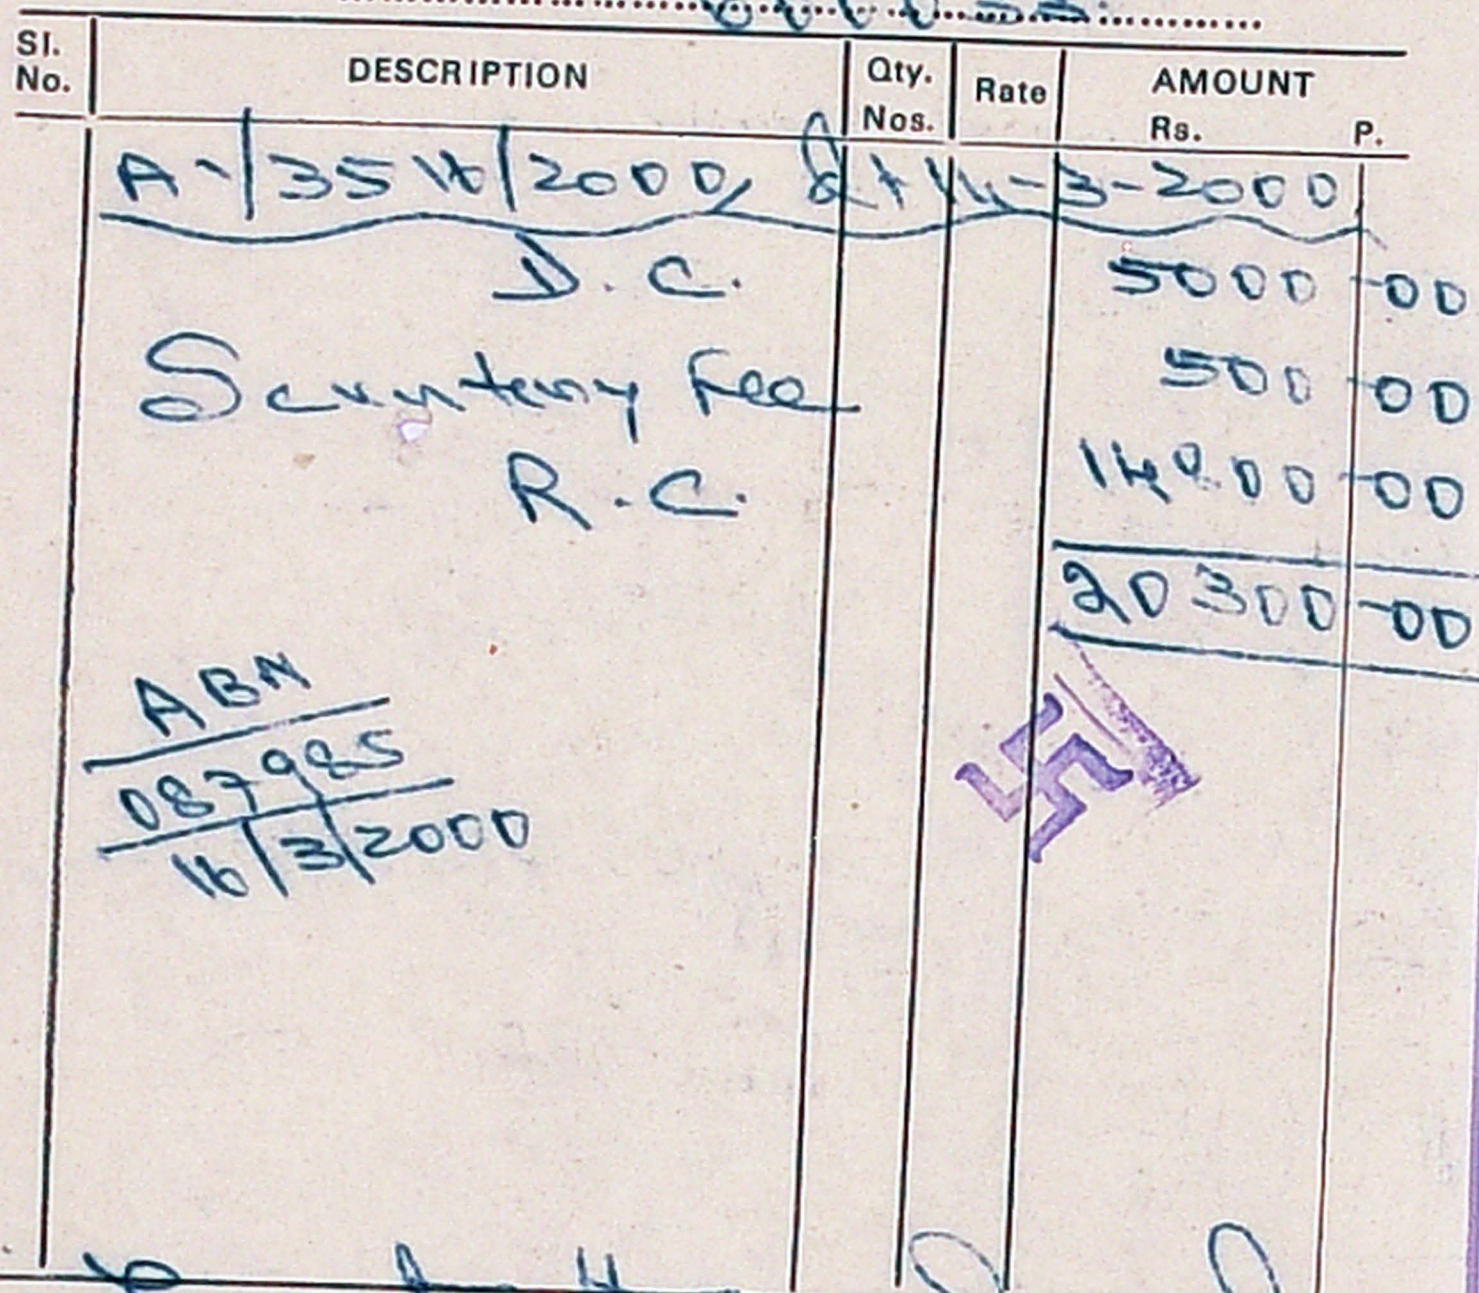 Sl. No. DESCRIPTION Qty. Nos. Rate AMOUNT Rs. P.
A-/3516/2000, dt 14-3-2000
D.C. 5000-00
Scrunteny Fee 500-00
R.C. 14800-00
20300-00
ABN
087985
16/3/2000